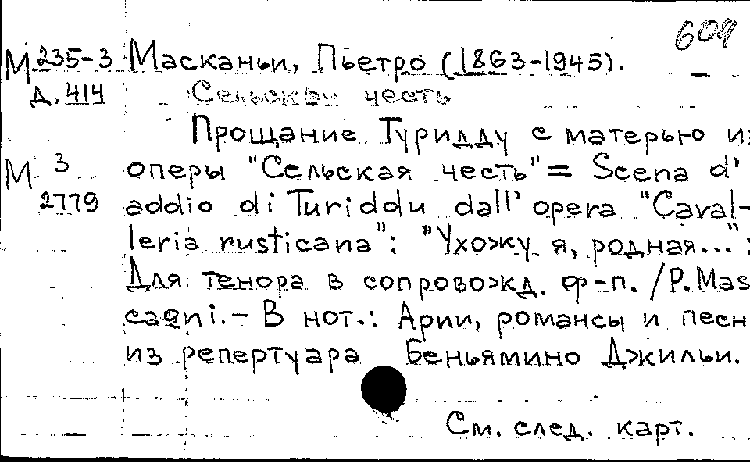 609
М 235-3 Масканьи, Пьетро (1863-1945).
д. 414 Сельская честь
Прощание Туридду с матерью из
М 3 оперы "Сельская честь" = Scena d'
2779 addio di Turiddu dall' opera "Caval-
leria rusticana": "Ухожу я, родная...":
Для тенора в сопровожд. ф-п. /P. Mas
cagni. - В нот.: Арии, романсы и песн
из репертуара Беньямино Джильи.
См. след. карт.